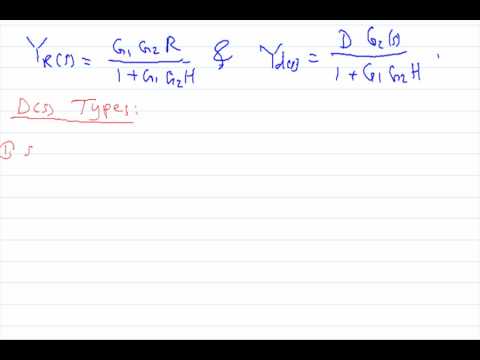 Y_R(s) = G1 G2 R / (1 + G1 G2 H) & Y_d(s) = D G2(s) / (1 + G1 G2 H) .
D(s) Types:
① s